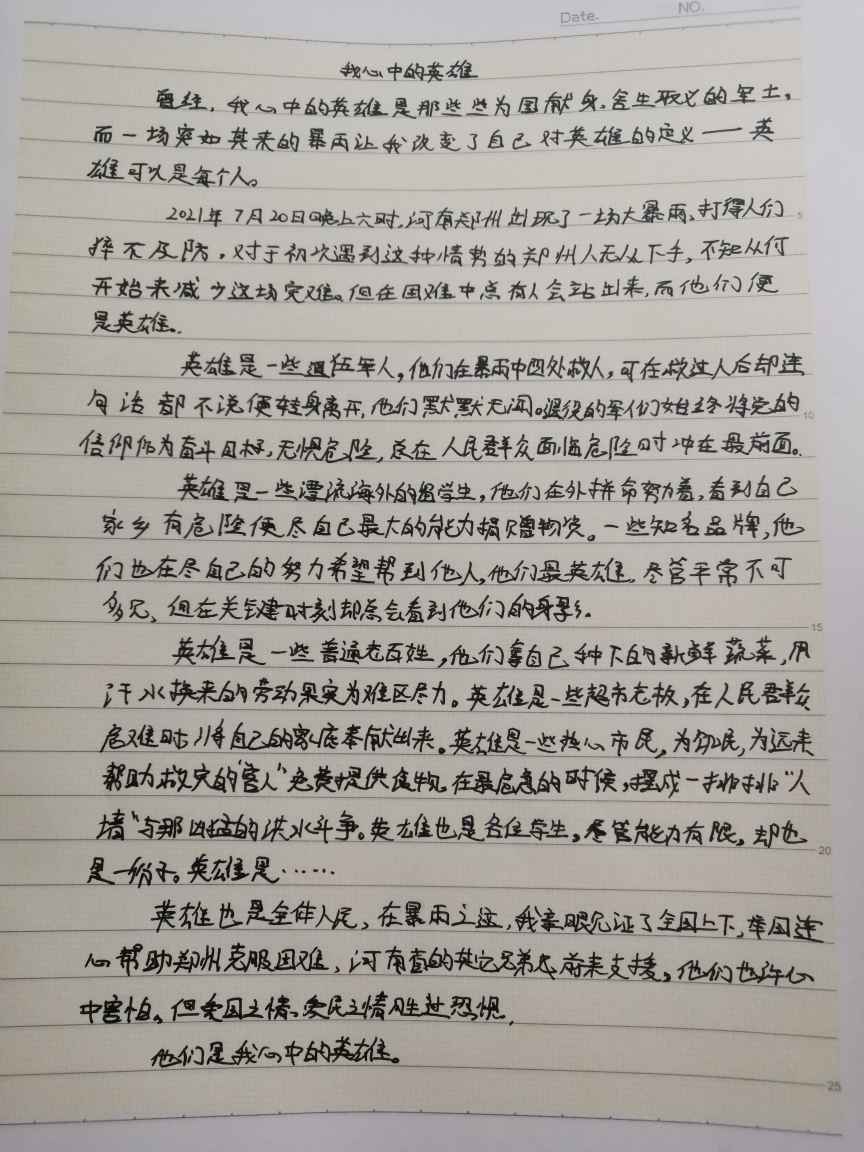 Date.
NO.
我心中的英雄
曾经，我心中的英雄是那些些为国献身、舍生取义的军士，
而一场突如其来的暴雨让我改变了自己对英雄的定义——英
雄可以是每个人。
2021年7月20日晚上六时，河南郑州出现了一场大暴雨，打得人们
5
猝不及防。对于初次遇到这种情势的郑州人无从下手，不知从何
开始来减少这场灾难。但在困难中总有人会站出来，而他们便
是英雄。
英雄是一些退伍军人，他们在暴雨中四处救人，可在救过人后却连
句话都不说便转身离开，他们默默无闻。退役的军人们始终将党的
10
信仰作为奋斗目标，无惧危险，总在人民群众面临危险时冲在最前面。
英雄是一些漂流海外的留学生，他们在外拼命努力着，看到自己
家乡有危险便尽自己最大的能力捐赠物资。一些知名品牌，他
们也在尽自己的努力希望帮到他人，他们最英雄。尽管平常不可
多见，但在关键时刻却总会看到他们的身影。
15
英雄是一些普通老百姓，他们拿自己种下的新鲜蔬菜，用
汗水换来的劳动果实为难区尽力。英雄是一些超市老板，在人民群众
危难时将自己的家底奉献出来。英雄是一些热心市民，为邻民，为远来
帮助救灾的“客人”免费提供食物。在最危急的时候，摆成一排排“人
墙”与那凶猛的洪水斗争。英雄也是各位学生，尽管能力有限，却也
20
是一份子。英雄是……
英雄也是全体人民，在暴雨之途，我亲眼见证了全国上下，举国连
心帮助郑州克服困难，河南省的其它兄弟也前来支援。他们也许心
中害怕。但爱国之情、爱民之情胜过恐惧。
他们是我心中的英雄。
25